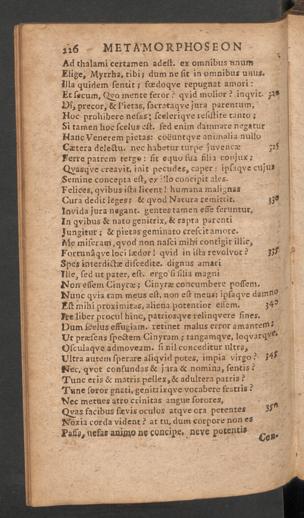 226 METAMORPHOSEON
Ad thalami certamen adest. ex omnibus unum
Elige, Myrrha, tibi; dum ne sit in omnibus unus.
Illa quidem sentit; fœdoqve repugnat amori:
Et secum, Qvo mente feror? qvid molior? inqvit. 320
Dî, precor, & Pietas, sacrataqve jura parentum,
Hoc prohibere nefas; sceleriqve resistite tanto;
Si tamen hoc scelus est. sed enim damnare negatur
Hanc Venerem pietas: coëuntqve animalia nullo
Cætera delectu. nec habetur turpe juvencæ 325
Ferre patrem tergo: fit equo sua filia conjux;
Quasqve creavit, init pecudes, caper: ipsaqve cujus
Semine concepta est, ex illo concipit ales.
Felices, qvibus ista licent! humana malignas
Cura dedit leges: & qvod Natura remittit, 330
Invida jura negant. gentes tamen esse feruntur,
In qvibus & nato genitrix, & nata parenti
Jungitur; & pietas geminato crescit amore.
Me miseram, qvod non nasci mihi contigit illic,
Fortunâqve loci lædor! qvid in ista revolvor? 335
Spes interdictæ discedite. dignus amari
Ille, sed ut pater, est. ergo si filia magni
Non essem Cinyræ; Cinyræ concumbere possem.
Nunc qvia tam meus est, non est meus: ipsaqve damno
Est mihi proximitas; aliena potentior essem. 340
Ire liber procul hinc, patriosqve relinqvere fines.
Dum scelus effugiam. retinet malus error amantem:
Ut præsens spectem Cinyram; tangamqve, loqvarqve,
Osculaqve admoveam. si nil conceditur ultra,
Ultra autem sperare aliqvid potes, impia virgo? 345
Nec, qvot confundas & jura & nomina, sentis?
Tunc eris & matris pellex, & adultera patris?
Tune soror gnati, genitrixqve vocabere fratris?
Nec metues atro crinitas angue sorores,
Qvas facibus sævis oculos atqve ora petentes 350
Noxia corda vident? at tu, dum corpore non es
Passa, nefas animo ne concipe. neve potentis
Con-